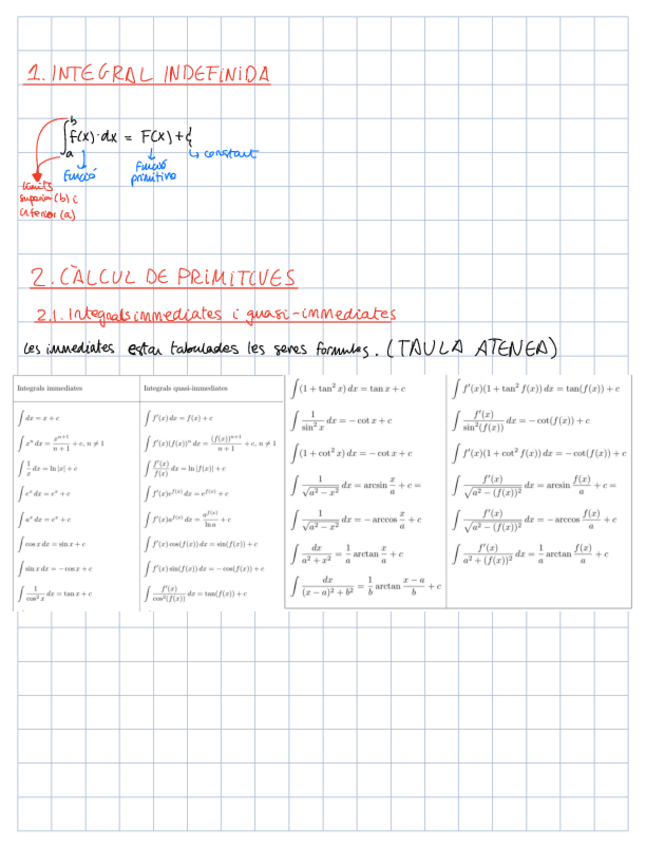 1. INTEGRAL INDEFINIDA
∫_a^b f(x)·dx = F(x)+ζ
constant
Funció
Funció
primitiva
límits
superior (b) i
inferior (a)
2. CÀLCUL DE PRIMITIVES
2.1. Integrals immediates i quasi-immediates
Les immediates estan tabulades les seves formules. (TAULA ATENEA)
Integrals immediates	Integrals quasi-immediates
∫ dx = x + c	∫ f'(x) dx = f(x) + c
∫ xⁿ dx = xⁿ⁺¹/(n + 1) + c, n ≠ 1	∫ f'(x)(f(x))ⁿ dx = (f(x))ⁿ⁺¹/(n + 1) + c, n ≠ 1
∫ 1/x dx = ln |x| + c	∫ f'(x)/f(x) dx = ln |f(x)| + c
∫ eˣ dx = eˣ + c	∫ f'(x)e^{f(x)} dx = e^{f(x)} + c
∫ aˣ dx = eˣ + c	∫ f'(x)a^{f(x)} dx = a^{f(x)}/ln a + c
∫ cos x dx = sin x + c	∫ f'(x) cos(f(x)) dx = sin(f(x)) + c
∫ sin x dx = − cos x + c	∫ f'(x) sin(f(x)) dx = − cos(f(x)) + c
∫ 1/cos² x dx = tan x + c	∫ f'(x)/cos²(f(x)) dx = tan(f(x)) + c
∫ (1 + tan² x) dx = tan x + c	∫ f'(x)(1 + tan² f(x)) dx = tan(f(x)) + c
∫ 1/sin² x dx = − cot x + c	∫ f'(x)/sin²(f(x)) dx = − cot(f(x)) + c
∫ (1 + cot² x) dx = − cot x + c	∫ f'(x)(1 + cot² f(x)) dx = − cot(f(x)) + c
∫ 1/√(a² − x²) dx = arcsin x/a + c =	∫ f'(x)/√(a² − (f(x))²) dx = arcsin f(x)/a + c =
∫ 1/√(a² − x²) dx = − arccos x/a + c	∫ f'(x)/√(a² − (f(x))²) dx = − arccos f(x)/a + c
∫ dx/(a² + x²) = 1/a arctan x/a + c	∫ f'(x)/(a² + (f(x))²) dx = 1/a arctan f(x)/a + c
∫ dx/((x − a)² + b²) = 1/b arctan (x − a)/b + c